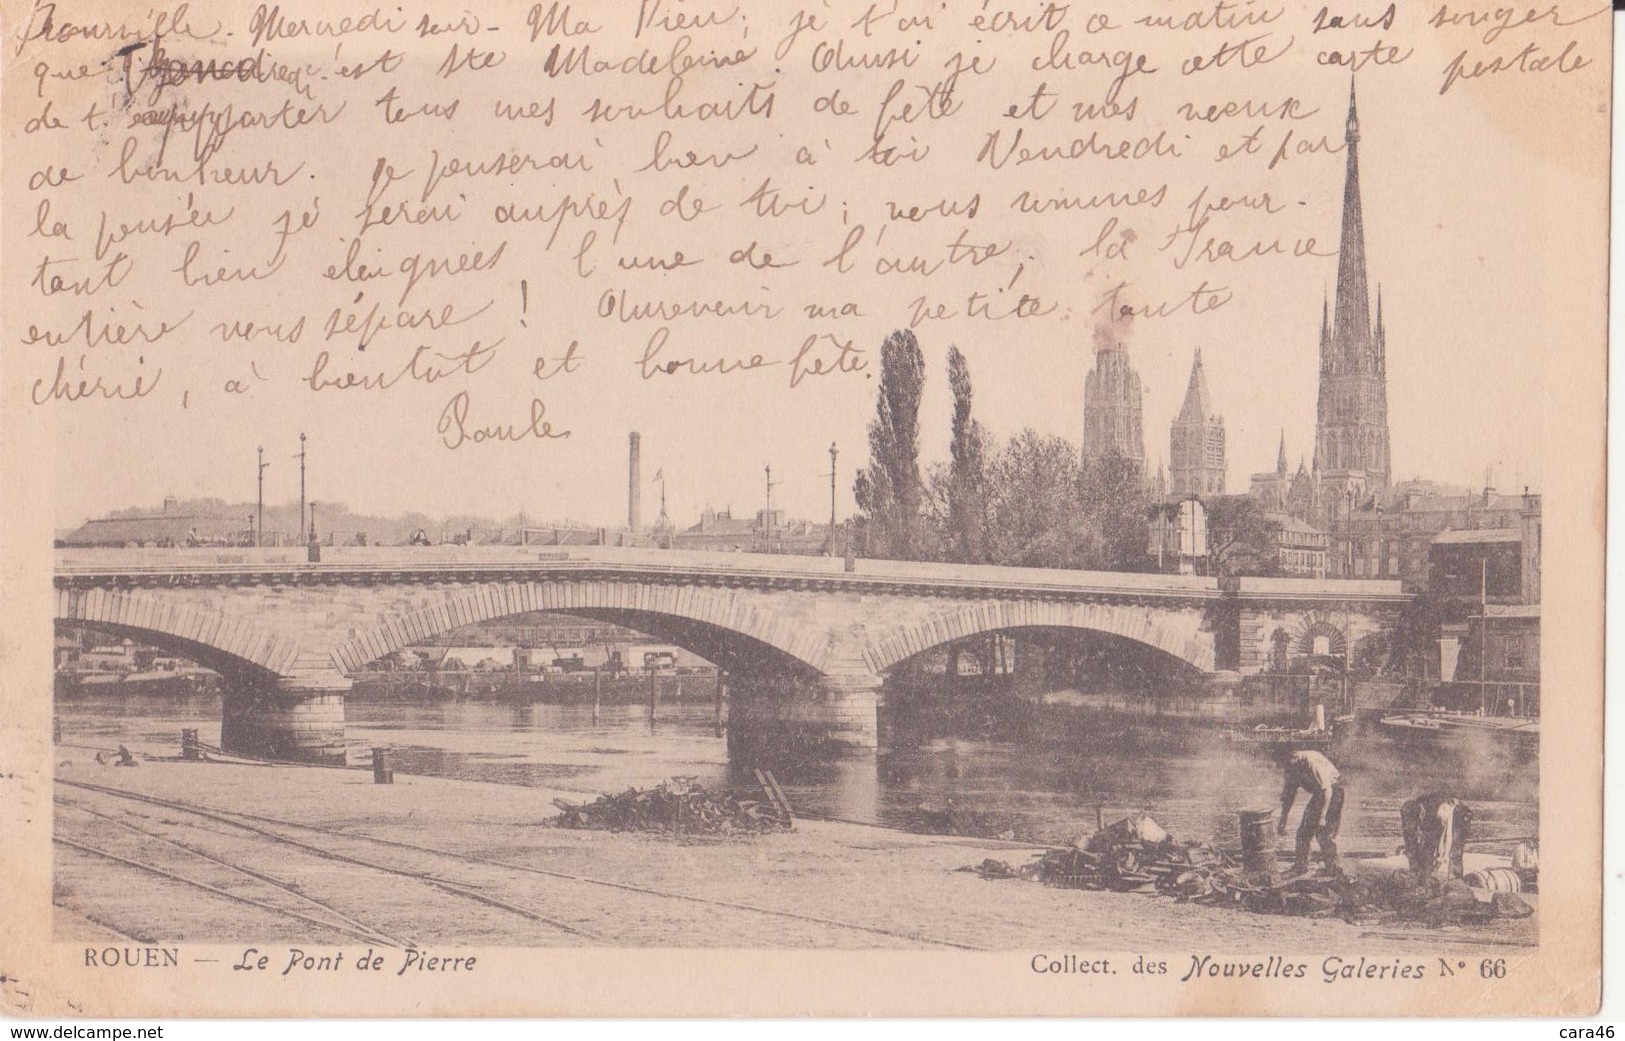 Trouville. Mercredi soir - Ma Vieu; je t'ai écrit ce matin sans songer
que Vendredi c'est Ste Madeleine. Aussi je charge cette carte postale
de t'apporter tous mes souhaits de fête et mes voeux
de bonheur. Je penserai bien à toi Vendredi et par
la pensée je serai auprès de toi; nous sommes pour-
tant bien éloignées l'une de l'autre; la France
entière nous sépare! Aurevoir ma petite tante
chérie, à bientôt et bonne fête.
Paule
ROUEN — Le Pont de Pierre
Collect. des Nouvelles Galeries N° 66
cara46